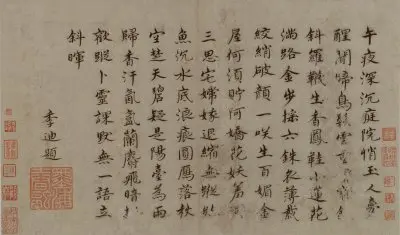 午夜深沉庭院悄玉人夢
醒聞啼鳥髻雲
斜羅襪生香鳳鞋小蓮花
滿路金步搖六銖衣薄裁
絞綃破顏一咲生百媚金
屋何須貯阿嬌花妖着
三思宅婦退縮無蹤
魚沉水底浪痕圓鴈落秋
空楚天碧疑是陽臺為雨
歸香汗氤氳蘭麝飛暗
蹤卜靈課默無一語立
斜暉
李迪題